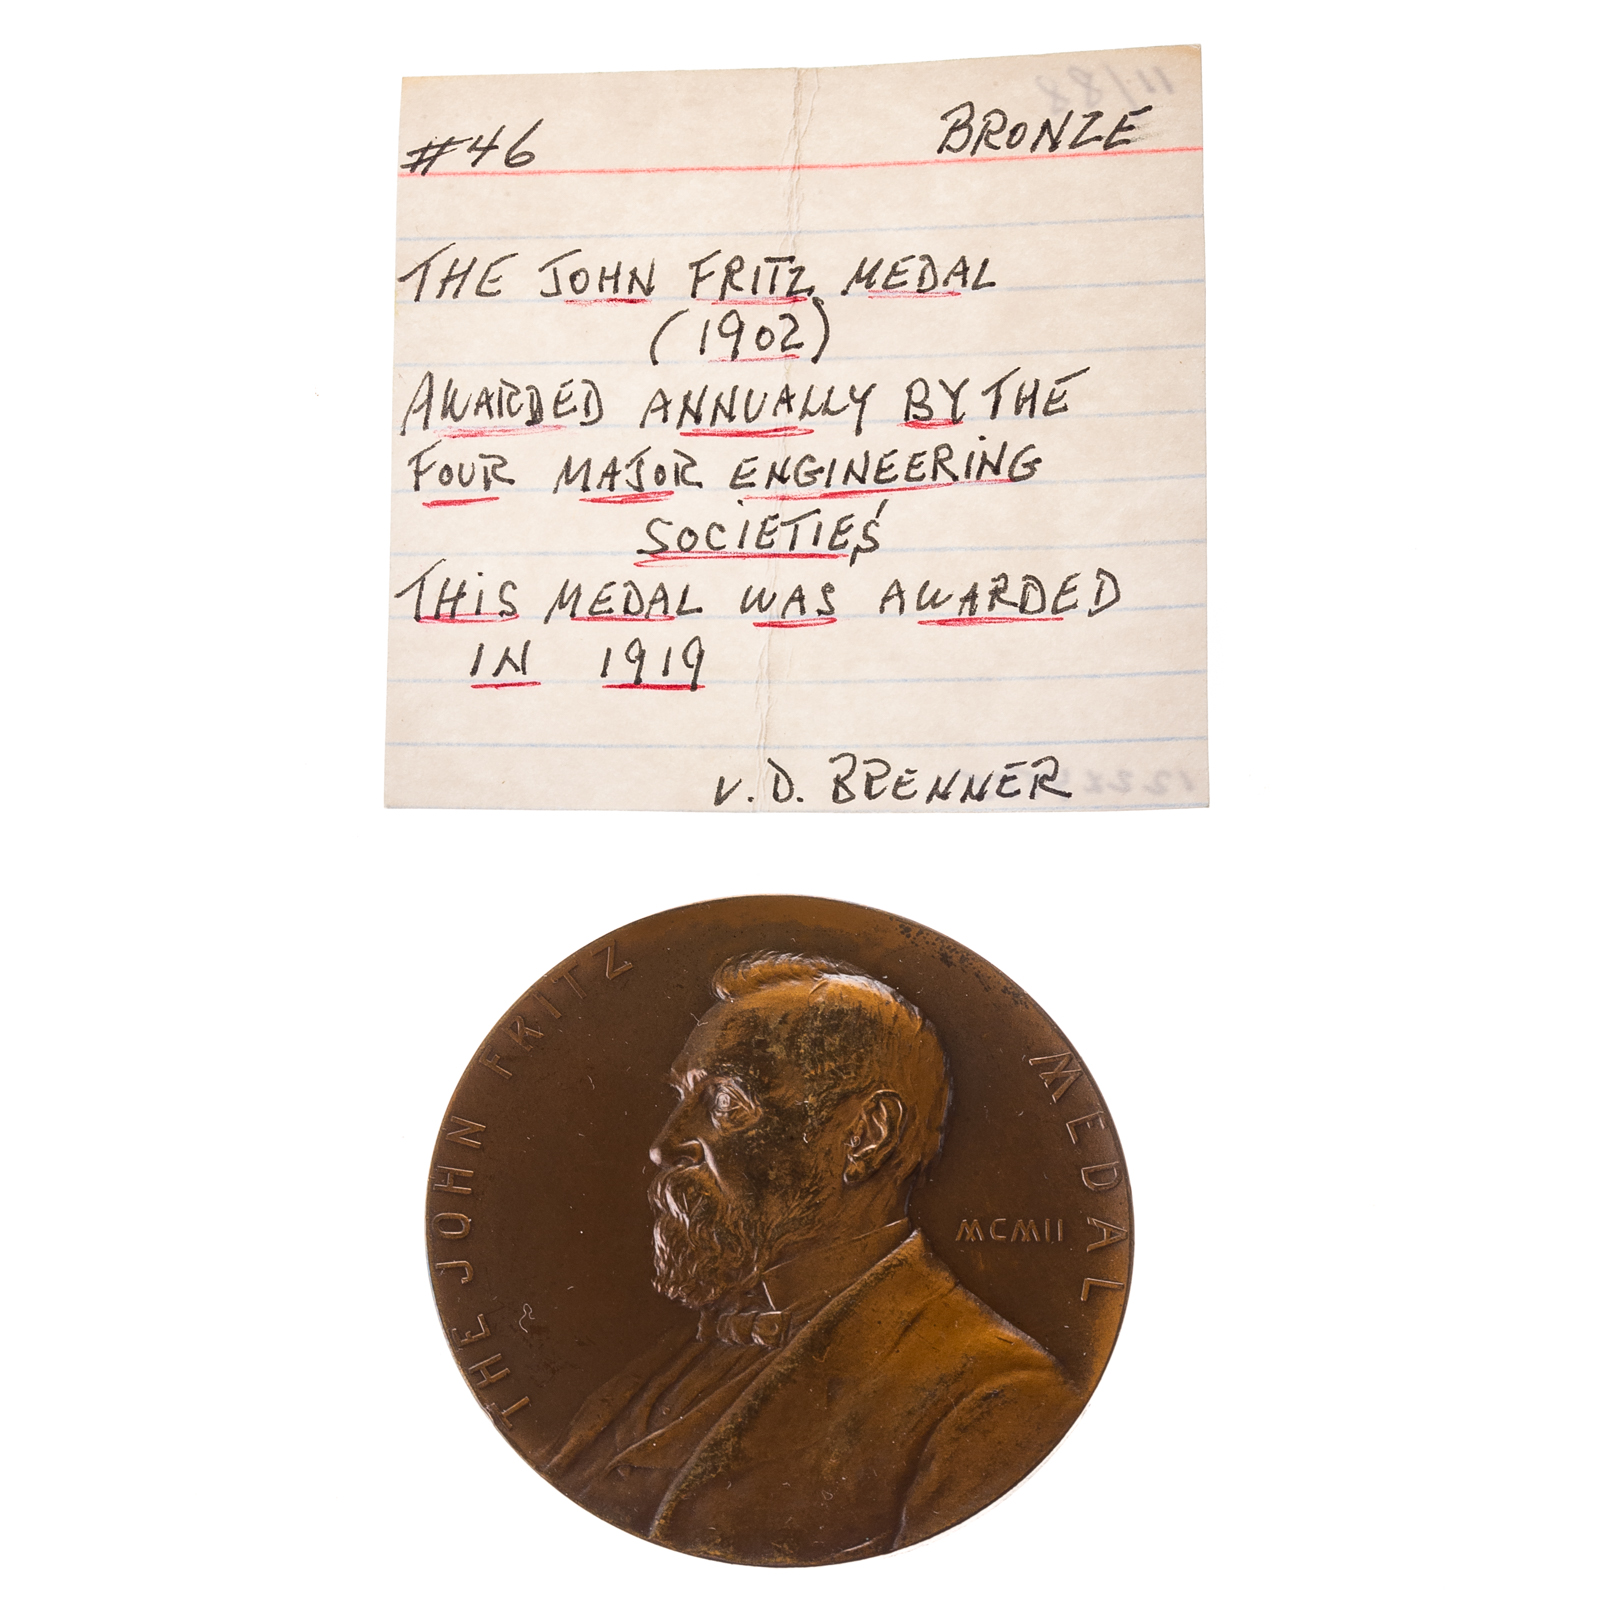 #46 BRONZE
THE JOHN FRITZ MEDAL
(1902)
AWARDED ANNUALLY BY THE
FOUR MAJOR ENGINEERING
SOCIETIES
THIS MEDAL WAS AWARDED
IN 1919
V.D. BRENNER
THE JOHN FRITZ MEDAL
MCMII